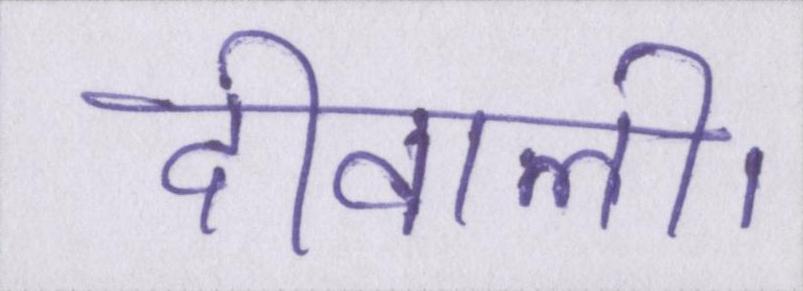 दीवाली।